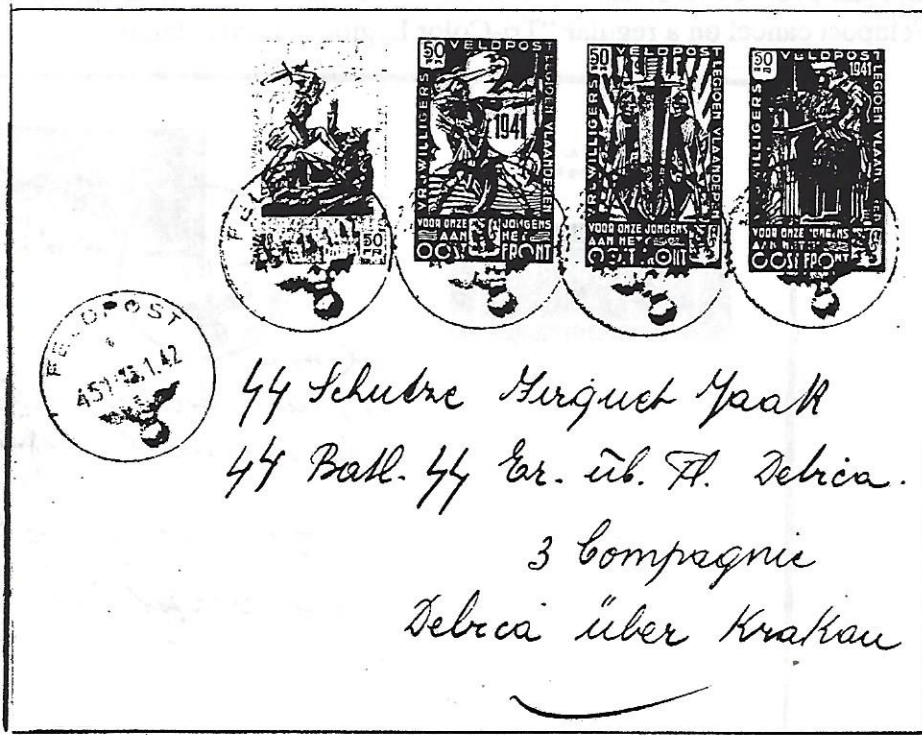 cancel on a regular
50 FR VELDPOST
VRIJWILLIGERS
LEGIOEN VLAANDEREN
1941
VOOR ONZE JONGENS
AAN HET
OOSTFRONT
50 FR VELDPOST
VRIJWILLIGERS
LEGIOEN VLAANDEREN
VOOR ONZE JONGENS
AAN HET
OOSTFRONT
50 FR VELDPOST
1941
VRIJWILLIGERS
LEGIOEN VLAANDEREN
VOOR ONZE JONGENS
AAN HET
OOSTFRONT
50
FR
FELDPOST
1.42
44 Schutze Jaak
44 Batl. 44 Er. üb. Pl. Debica.
3 Compagnie
Debica über Krakau